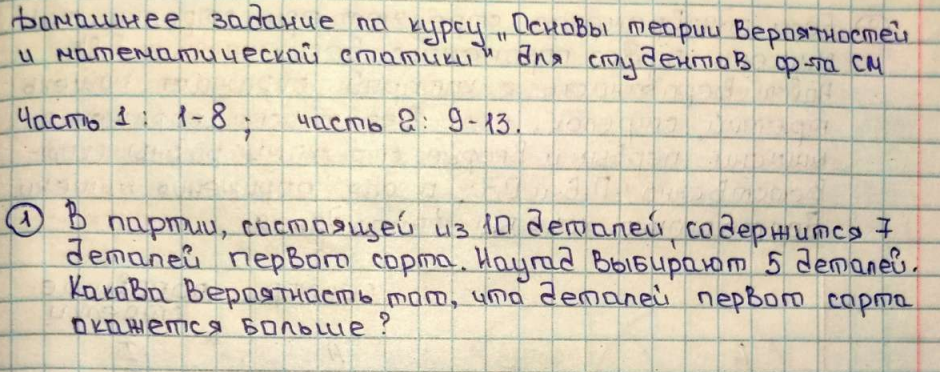 Домашнее задание по курсу „Основы теории вероятностей
и математической статики" для студентов ф-та СМ
Часть 1: 1-8; часть 2: 9-13.
1 В партии, состоящей из 10 деталей, содержится 7
деталей первого сорта. Наугад выбирают 5 деталей.
Какова вероятность того, что деталей первого сорта
окажется больше?